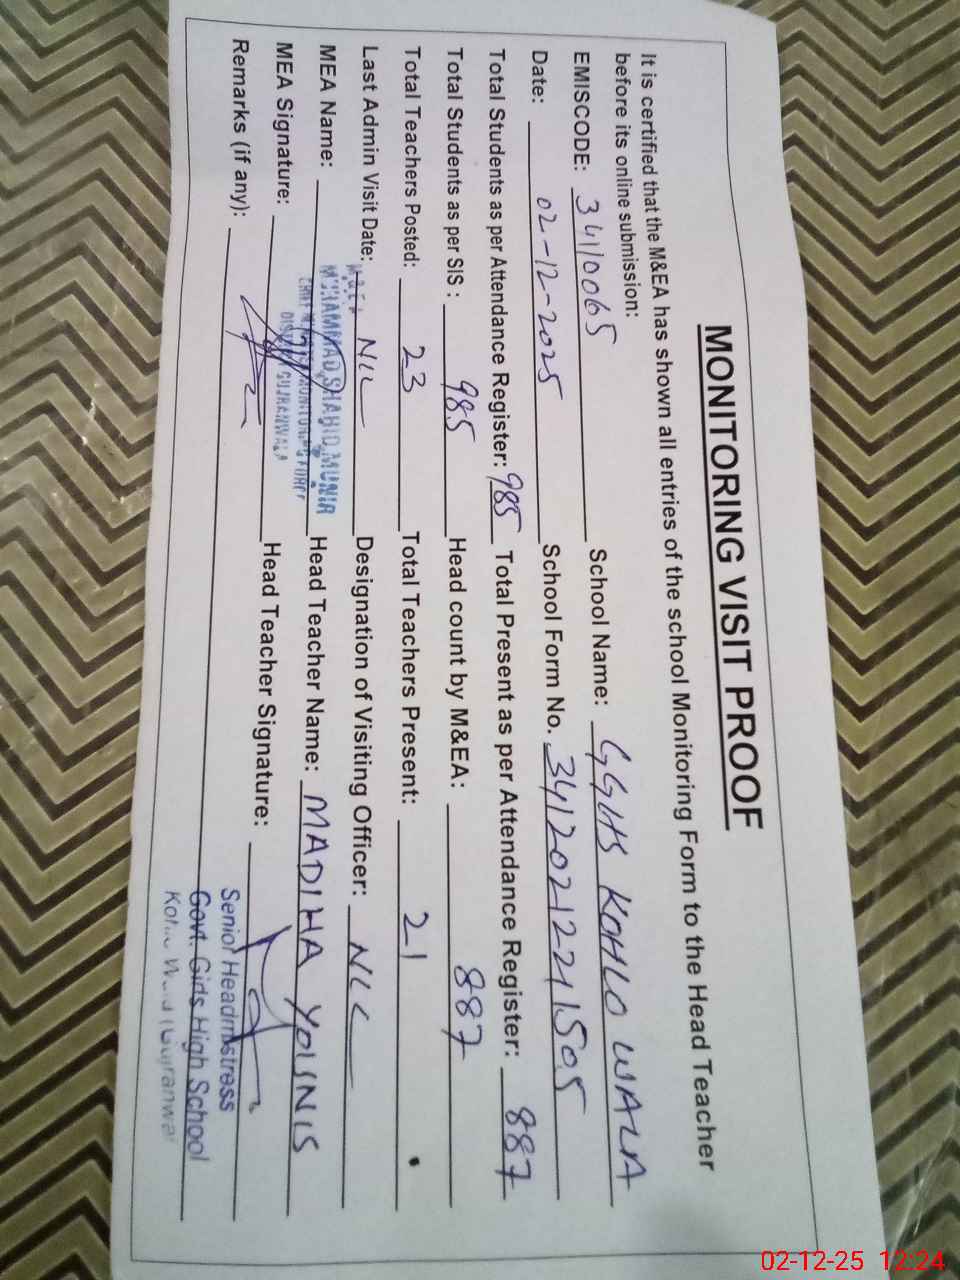 MONITORING VISIT PROOF
It is certified that the M&EA has shown all entries of the school Monitoring Form to the Head Teacher
before its online submission:
EMISCODE: 34110065 School Name: GGHS KOHLO WALA
Date: 02-12-2025 School Form No. 3412021221505
Total Students as per Attendance Register: 985 Total Present as per Attendance Register: 887
Total Students as per SIS : 985 Head count by M&EA: 887
Total Teachers Posted: 23 Total Teachers Present: 21
Last Admin Visit Date: NIL Designation of Visiting Officer: NIL
MEA Name: MUHAMMAD SHAHID MUNIR Head Teacher Name: MADIHA YOUNIS
DISTRICT GUJRANWALA
MEA Signature: Head Teacher Signature:
Remarks (if any):
Senior Headmistress
Govt. Girls High School
02-12-25 12:24